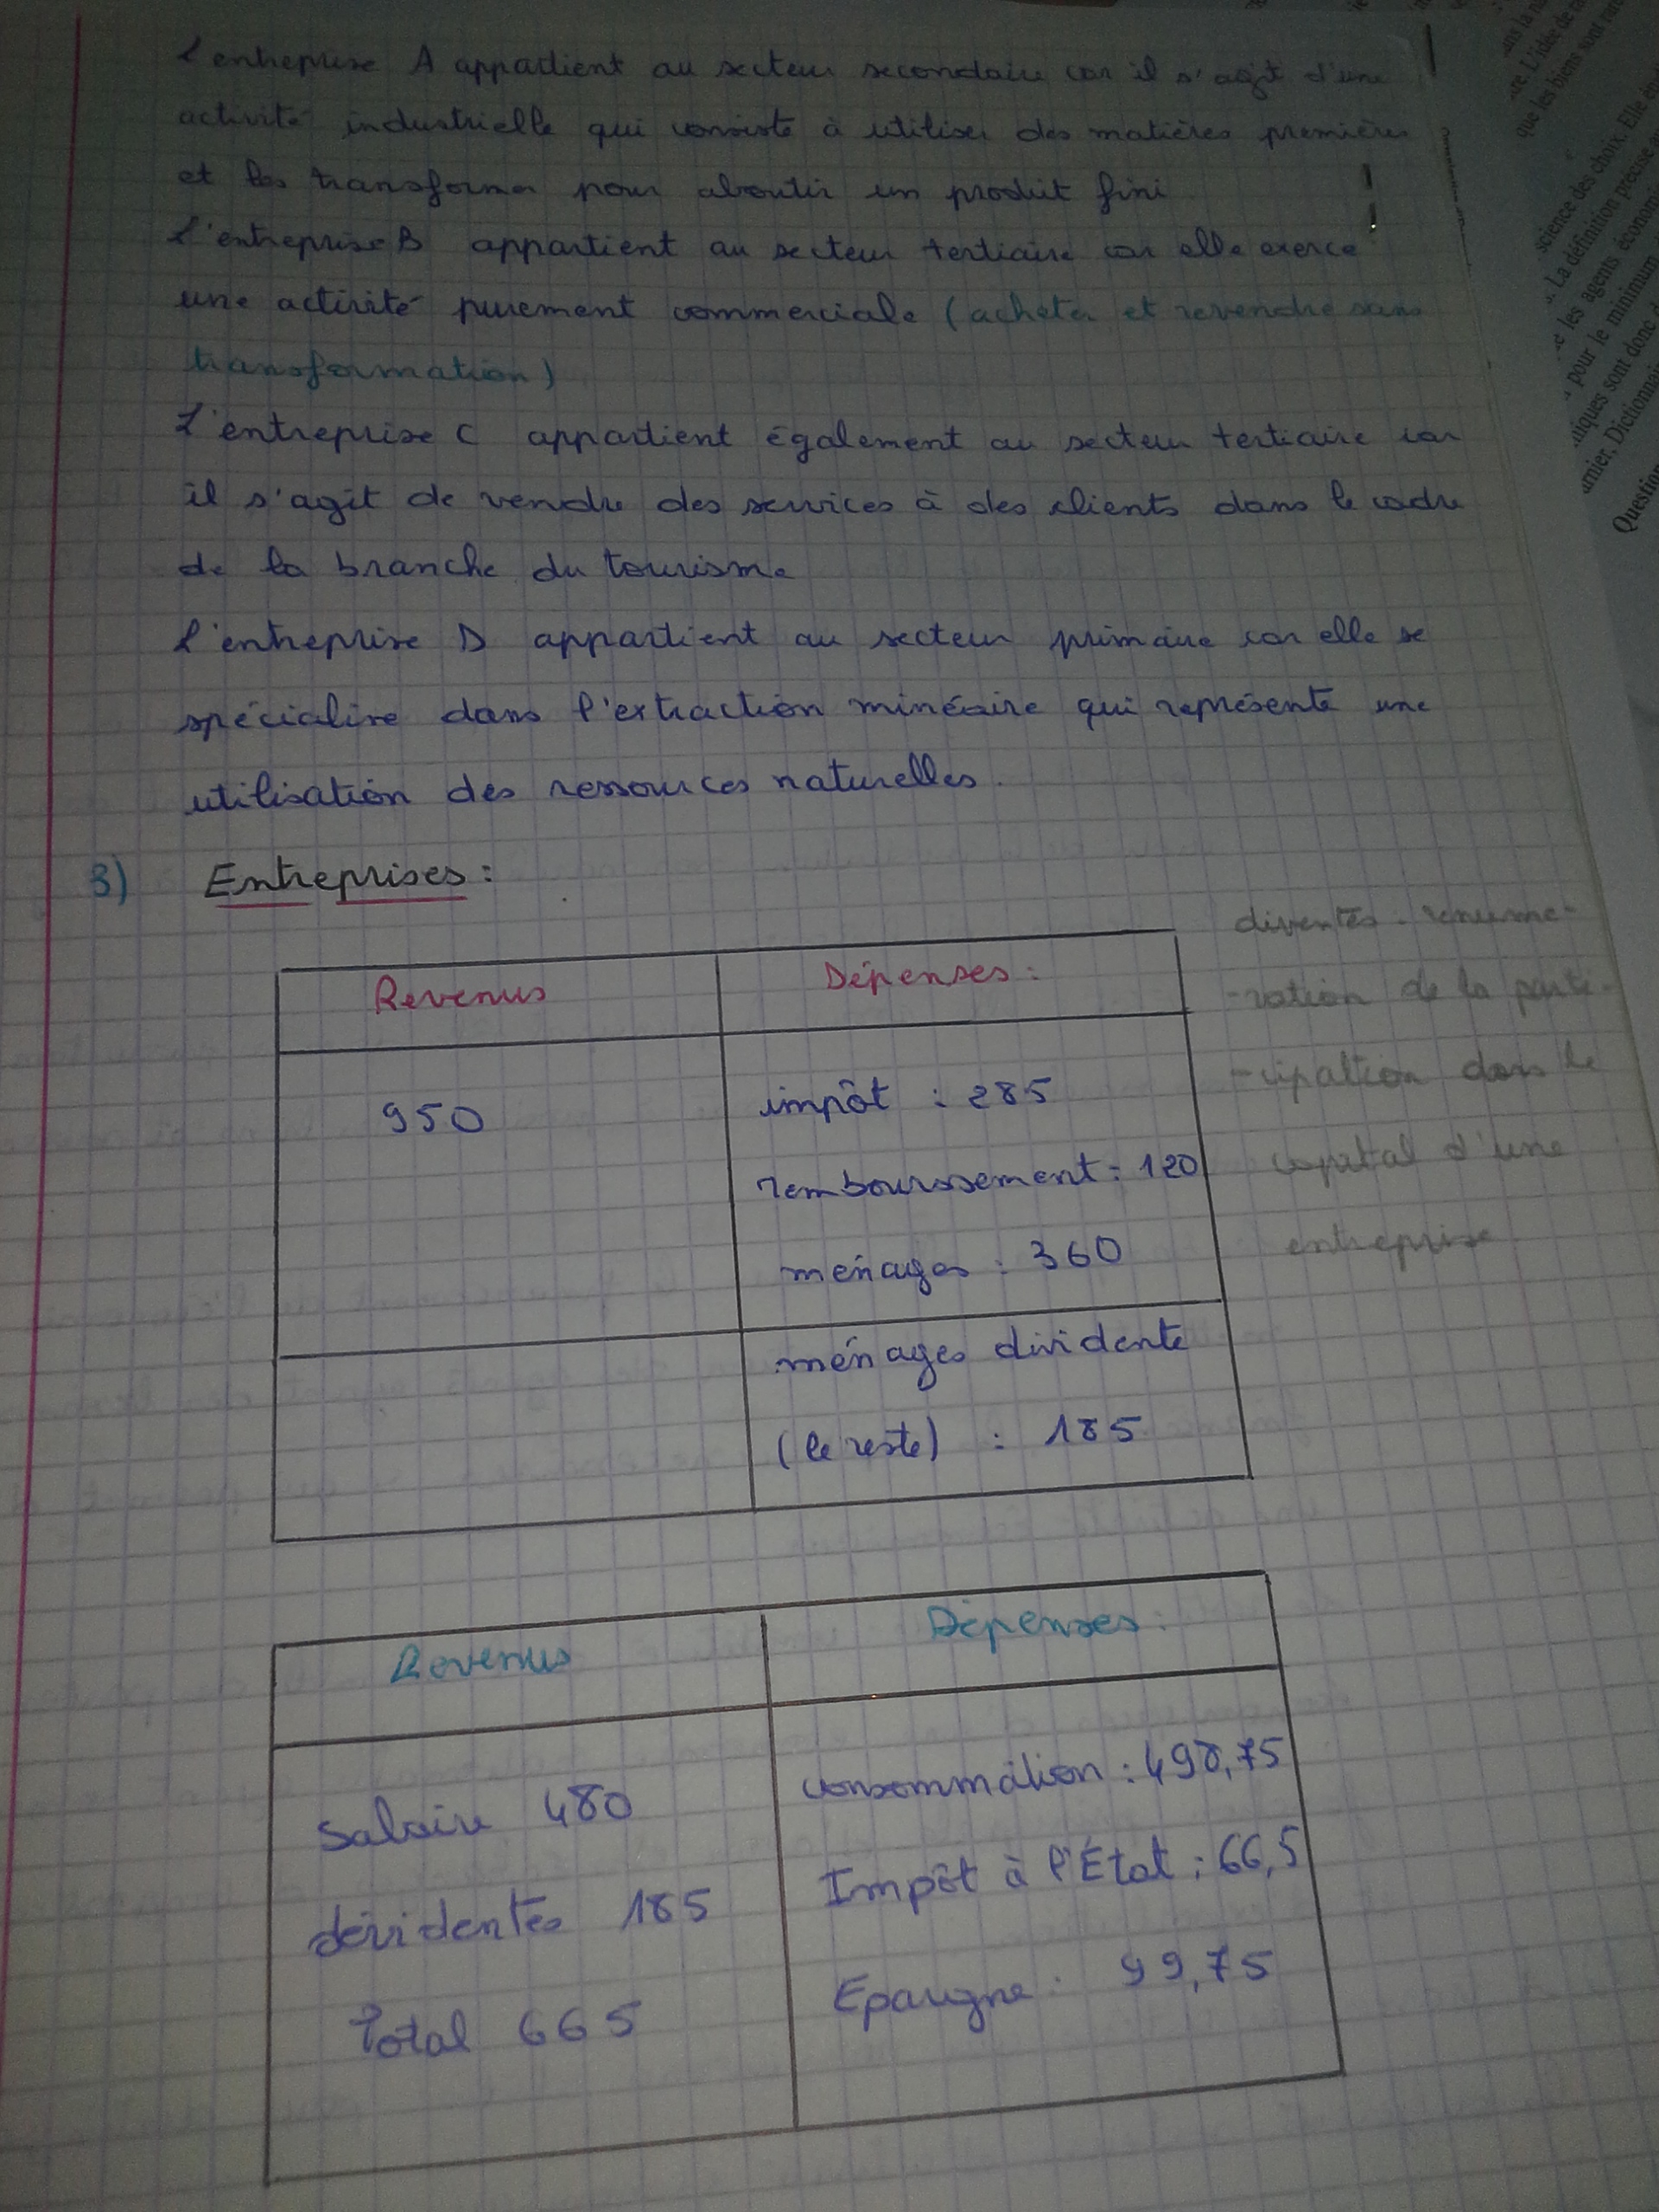 L'entreprise A appartient au secteur secondaire car il s'agit d'une
activité industrielle qui consiste à utiliser des matières premières
et les transformer pour aboutir un produit fini
L'entreprise B appartient au secteur tertiaire car elle exerce
une activité purement commerciale (acheter et revendre sans
transformation)
L'entreprise C appartient également au secteur tertiaire car
il s'agit de vendre des services à des clients dans le cadre
de la branche du tourisme
L'entreprise D appartient au secteur primaire car elle se
spécialire dans l'extraction minéaire qui représente une
utilisation des ressources naturelles.
3) Entreprises :
Revenus
Dépenses :
950
impôt : 285
remboursement : 120
ménages : 360
ménages dividente
(le reste) : 185
diventes
-ration de la parti-
-cipaltion dans le
capital d'une
entreprise
Revenus
Dépenses :
Salaire 480
dévidentes 185
Total 665
consommation : 498,75
Impôt à l'État : 66,5
Epargne : 99,75
science des choix. Elle
La définition précise
les agents économi
pour le minimum
iques sont donc
Dictionnai
Question
que les biens sont rare